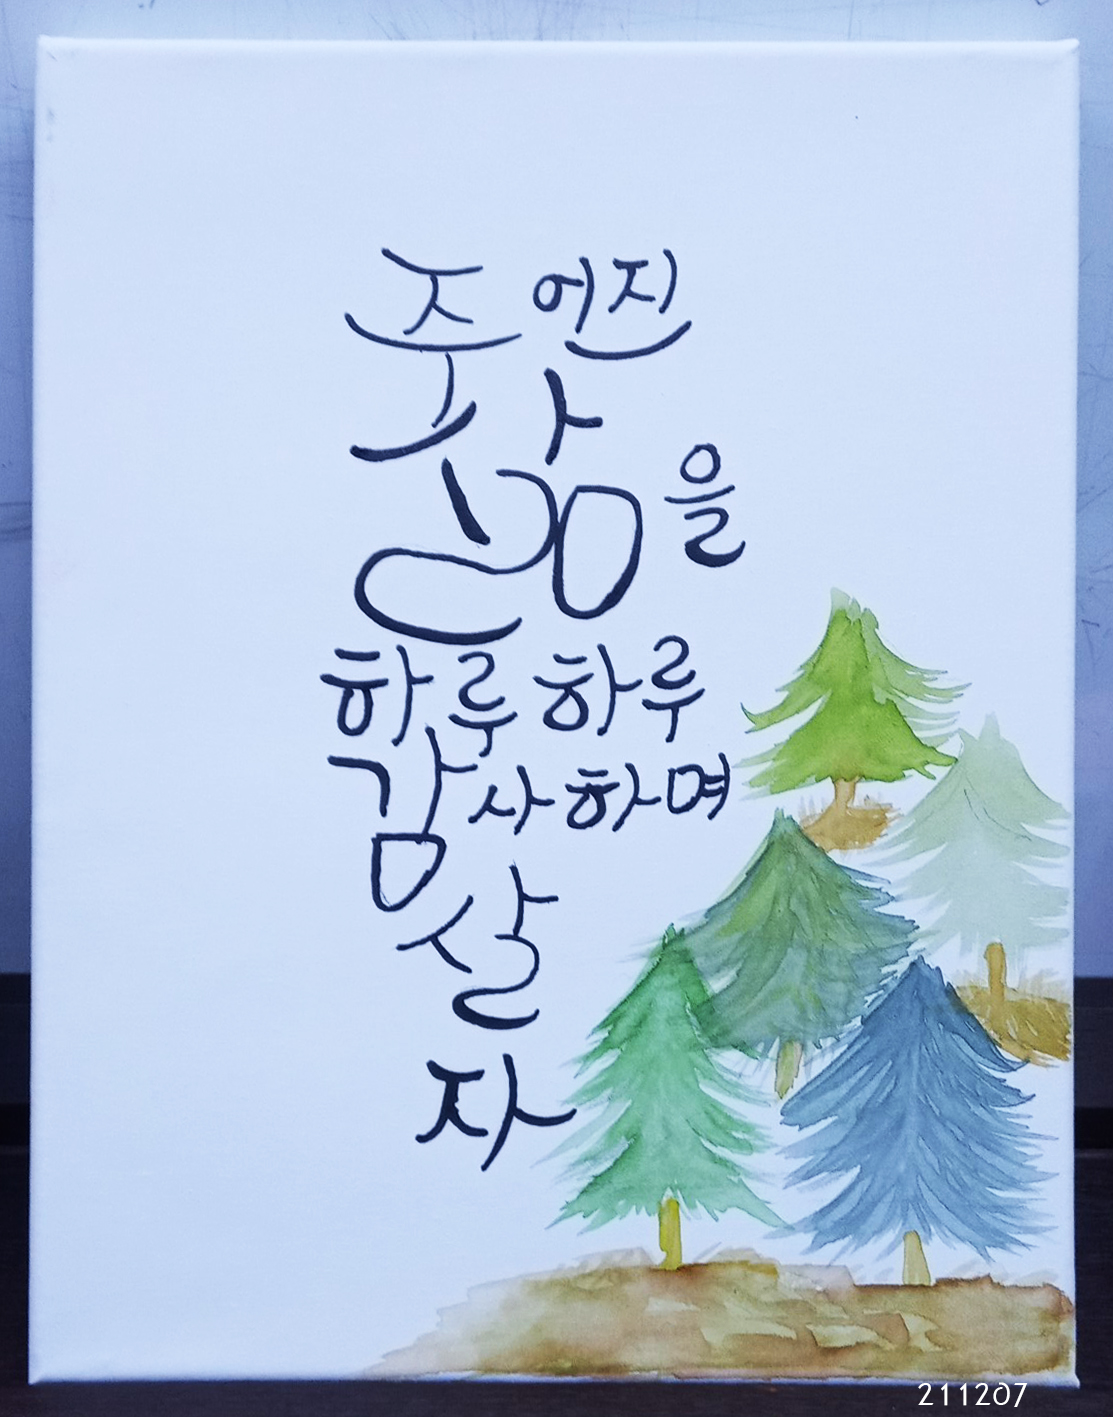 주어진
삶을
하루하루
감사하며
살
자
211207